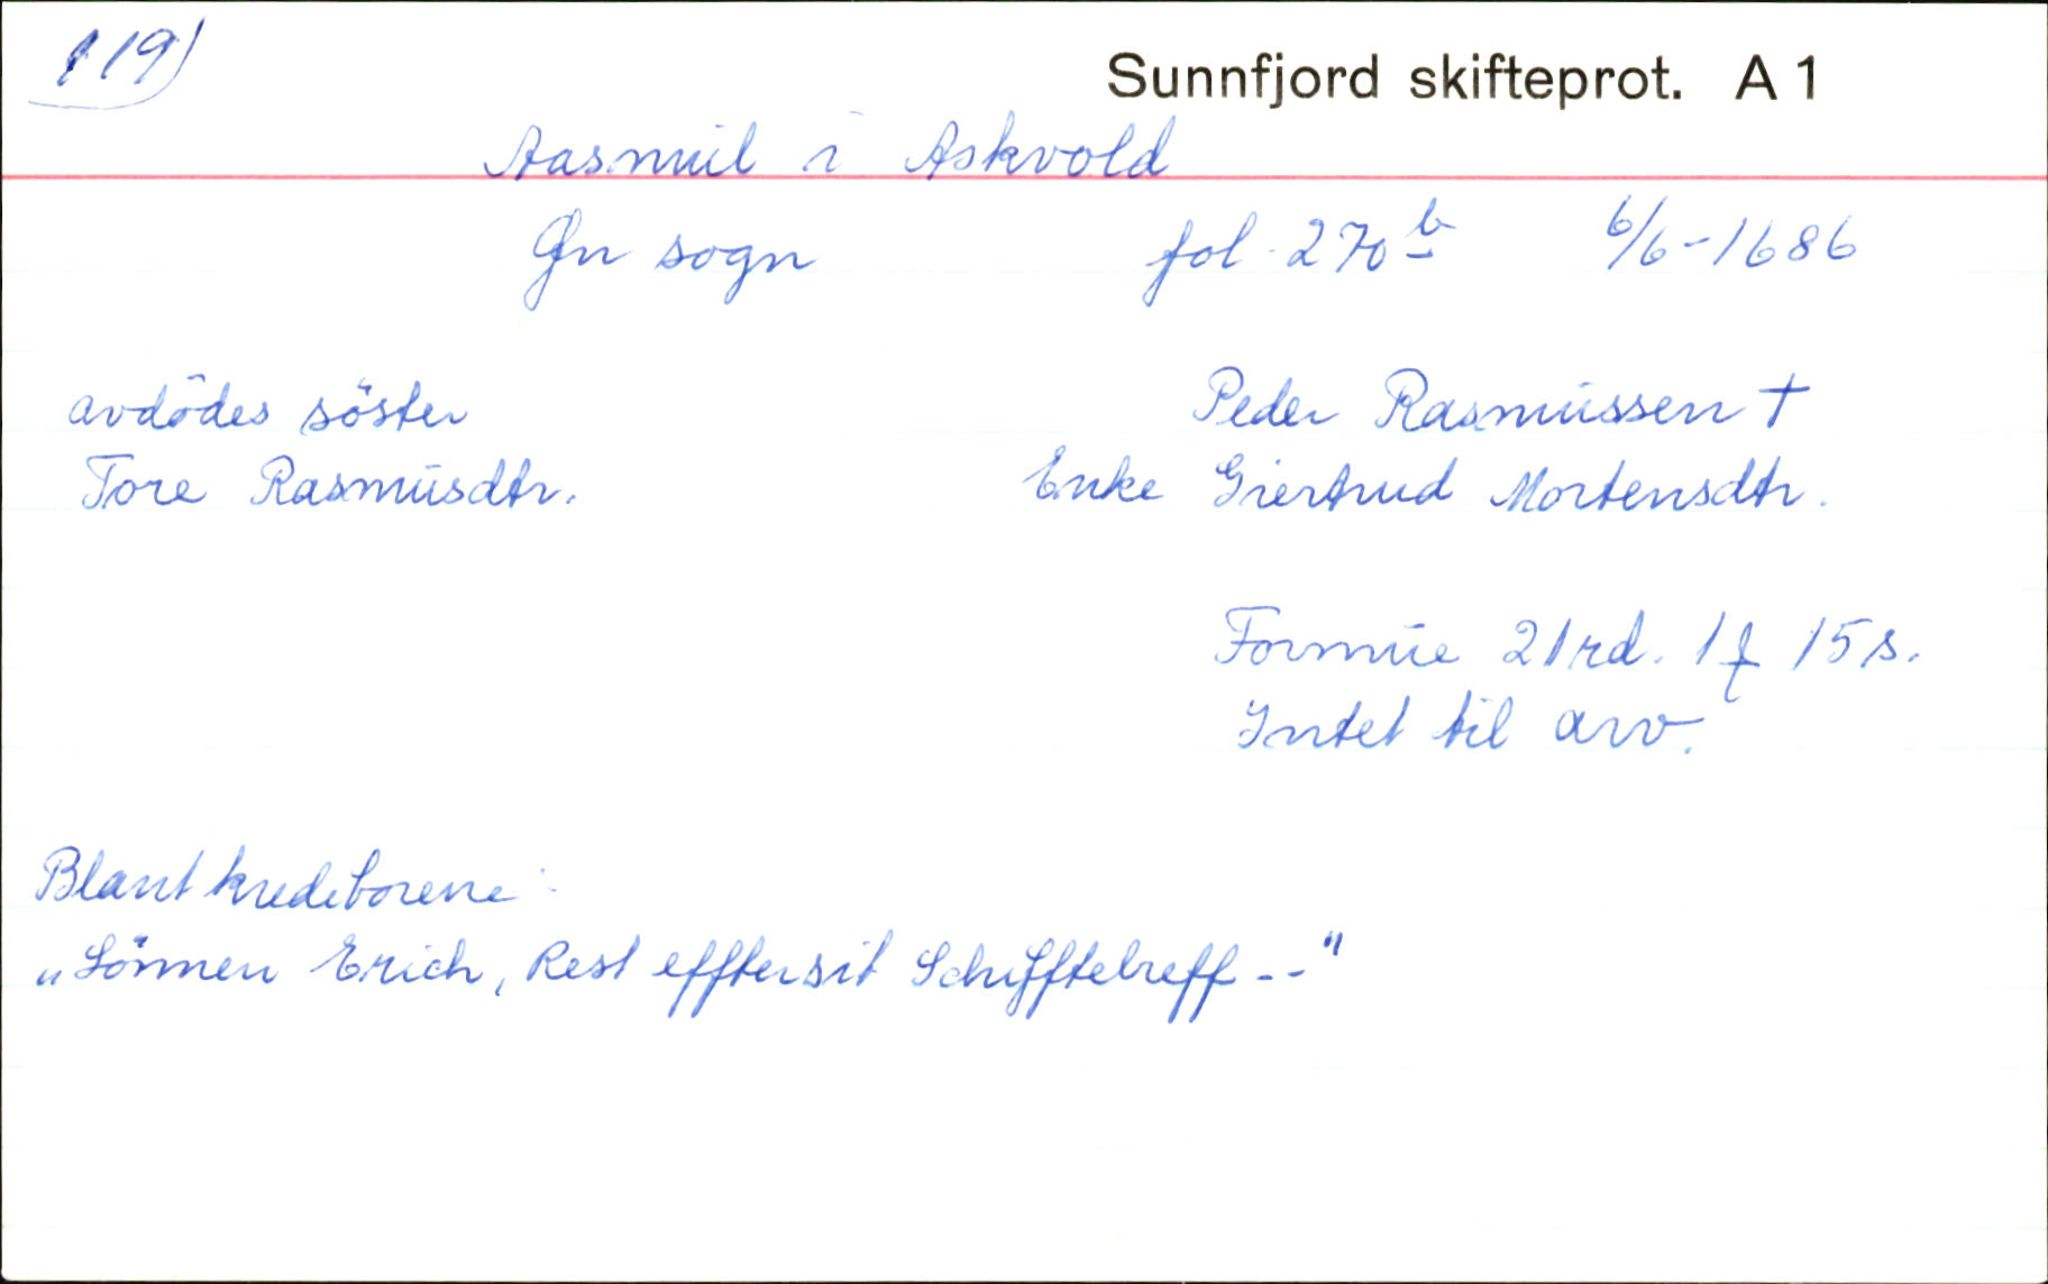 119)
Sunnfjord skifteprot. A 1
Aasmul i Askvold
sogn fol. 270 b 6/6-1686
avdödes söster Peder Rasmussen †
Tore Rasmusdtr. Enke Giertrud Mortensdtr.
Formue 21 rd. 1 15 s.
Intet til arv.
Blant kreditorene:
„Sönnen Erich, Rest effter sit Schifftebreff - -"